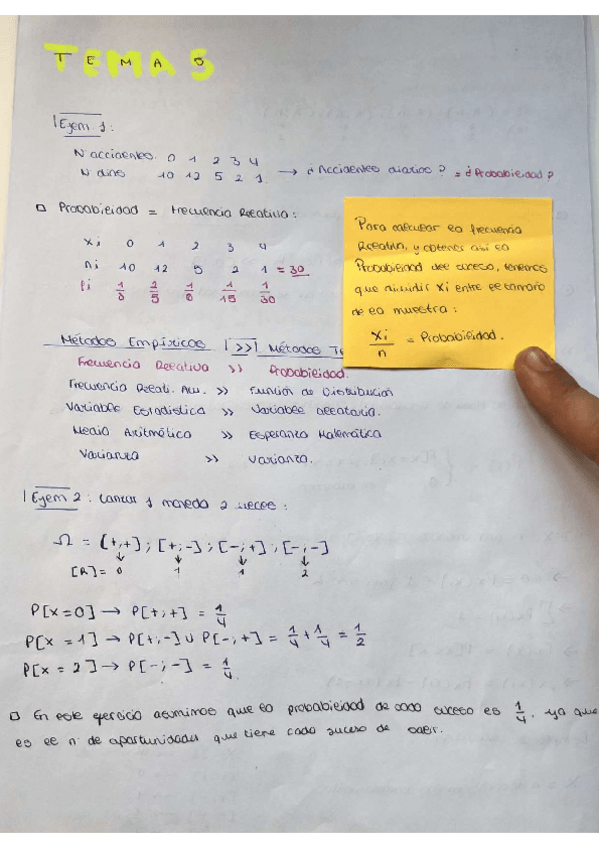 TEMA 5
Ejem 1:
N accidentes 0 1 2 3 4
N dias 10 12 5 2 1 → ¿Accidentes diarios? = ¿Probabilidad?
Probabilidad = Frecuencia Relativa:
xi 0 1 2 3 4
ni 10 12 5 2 1 = 30
fi 1/3 2/5 1/6 1/15 1/30
Para calcular la frecuencia
Relativa, y obtener así la
Probabilidad del suceso, tenemos
que dividir xi entre el tamaño
de la muestra:
xi/n = Probabilidad.
Métodos Empíricos >> Métodos
Frecuencia Relativa >> Probabilidad.
Frecuencia Relati. Acu. >> Función de Distribución
Variable Estadística >> Variable Aleatoria.
Media Aritmética >> Esperanza Matemática
Varianza >> Varianza.
Ejem 2: Lanzar 1 moneda 2 veces:
Ω = [+,+]; [+;-]; [-;+]; [-;-]
[R]= 0 1 1 2
P[x=0] → P[+;+] = 1/4
P[x=1] → P[+;-] U P[-;+] = 1/4 + 1/4 = 1/2
P[x=2] → P[-;-] = 1/4
En este ejercicio asumimos que la probabilidad de cada suceso es 1/4, ya que
es el n de oportunidades que tiene cada suceso de salir.